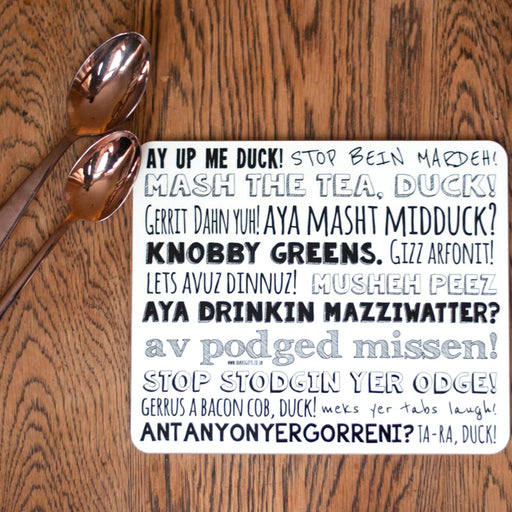 AY UP ME DUCK! STOP BEIN MARDEH!
MASH THE TEA, DUCK!
GERRIT DAHN YUH! AYA MASHT MIDDUCK?
KNOBBY GREENS. GIZZ ARFONIT!
LETS AVUZ DINNUZ! MUSHEH PEEZ
AYA DRINKIN MAZZIWATTER?
av podged missen!
STOP STODGIN YER ODGE!
GERRUS A BACON COB, DUCK! meks yer tabs laugh!
ANTANYONYERGORRENI? TA-RA, DUCK!